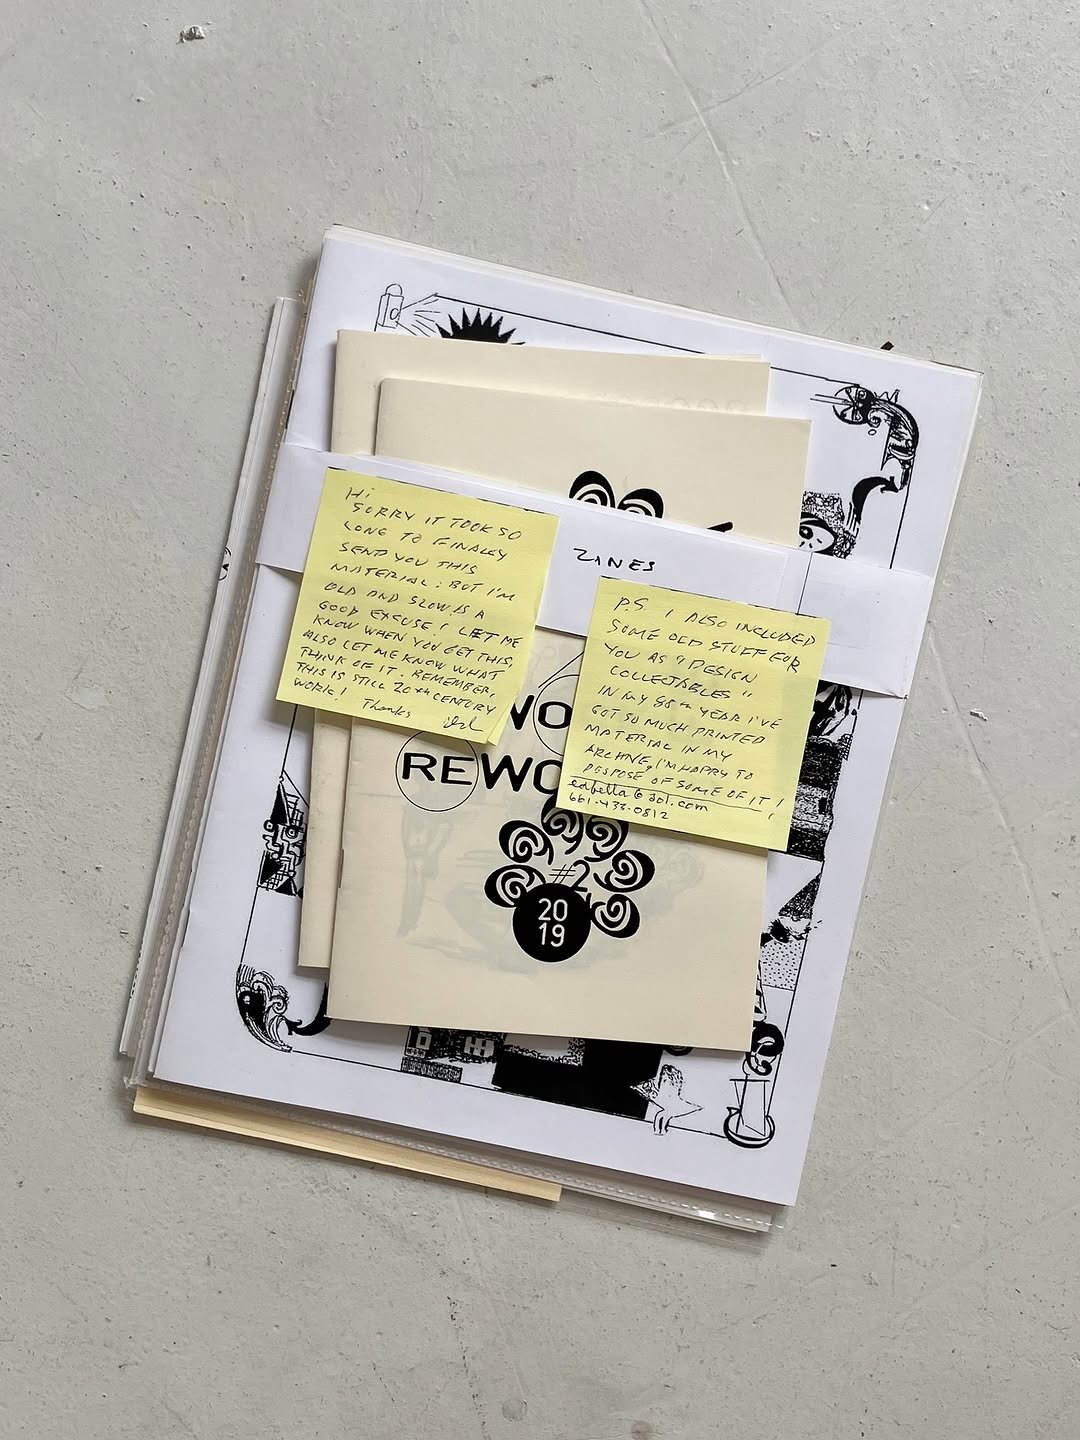 Hi
SORRY IT TOOK SO
LONG TO FINALLY
SEND YOU THIS
MATERIAL: BUT I'M
OLD AND SLOW IS A
GOOD EXCUSE! LET ME
KNOW WHEN YOU GET THIS,
ALSO LET ME KNOW WHAT
THINK OF IT. REMEMBER,
THIS IS STILL 20TH CENTURY
WORK!
Thanks,
ZINES
P.S. I ALSO INCLUDED
SOME OLD STUFF FOR
YOU AS "DESIGN
COLLECTABLES"
IN MY 88TH YEAR I'VE
GOT SO MUCH PRINTED
MATERIAL IN MY
ARCHIVE, I'M HAPPY TO
DISPOSE OF SOME OF IT!
edfella@aol.com
661-433-0812
WO
REWO
#2
20
19